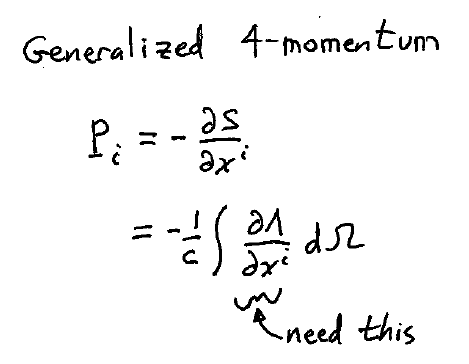 Generalized 4-momentum
P_i = - ∂S/∂x^i
= - 1/c ∫ ∂Λ/∂x^i dΩ
need this